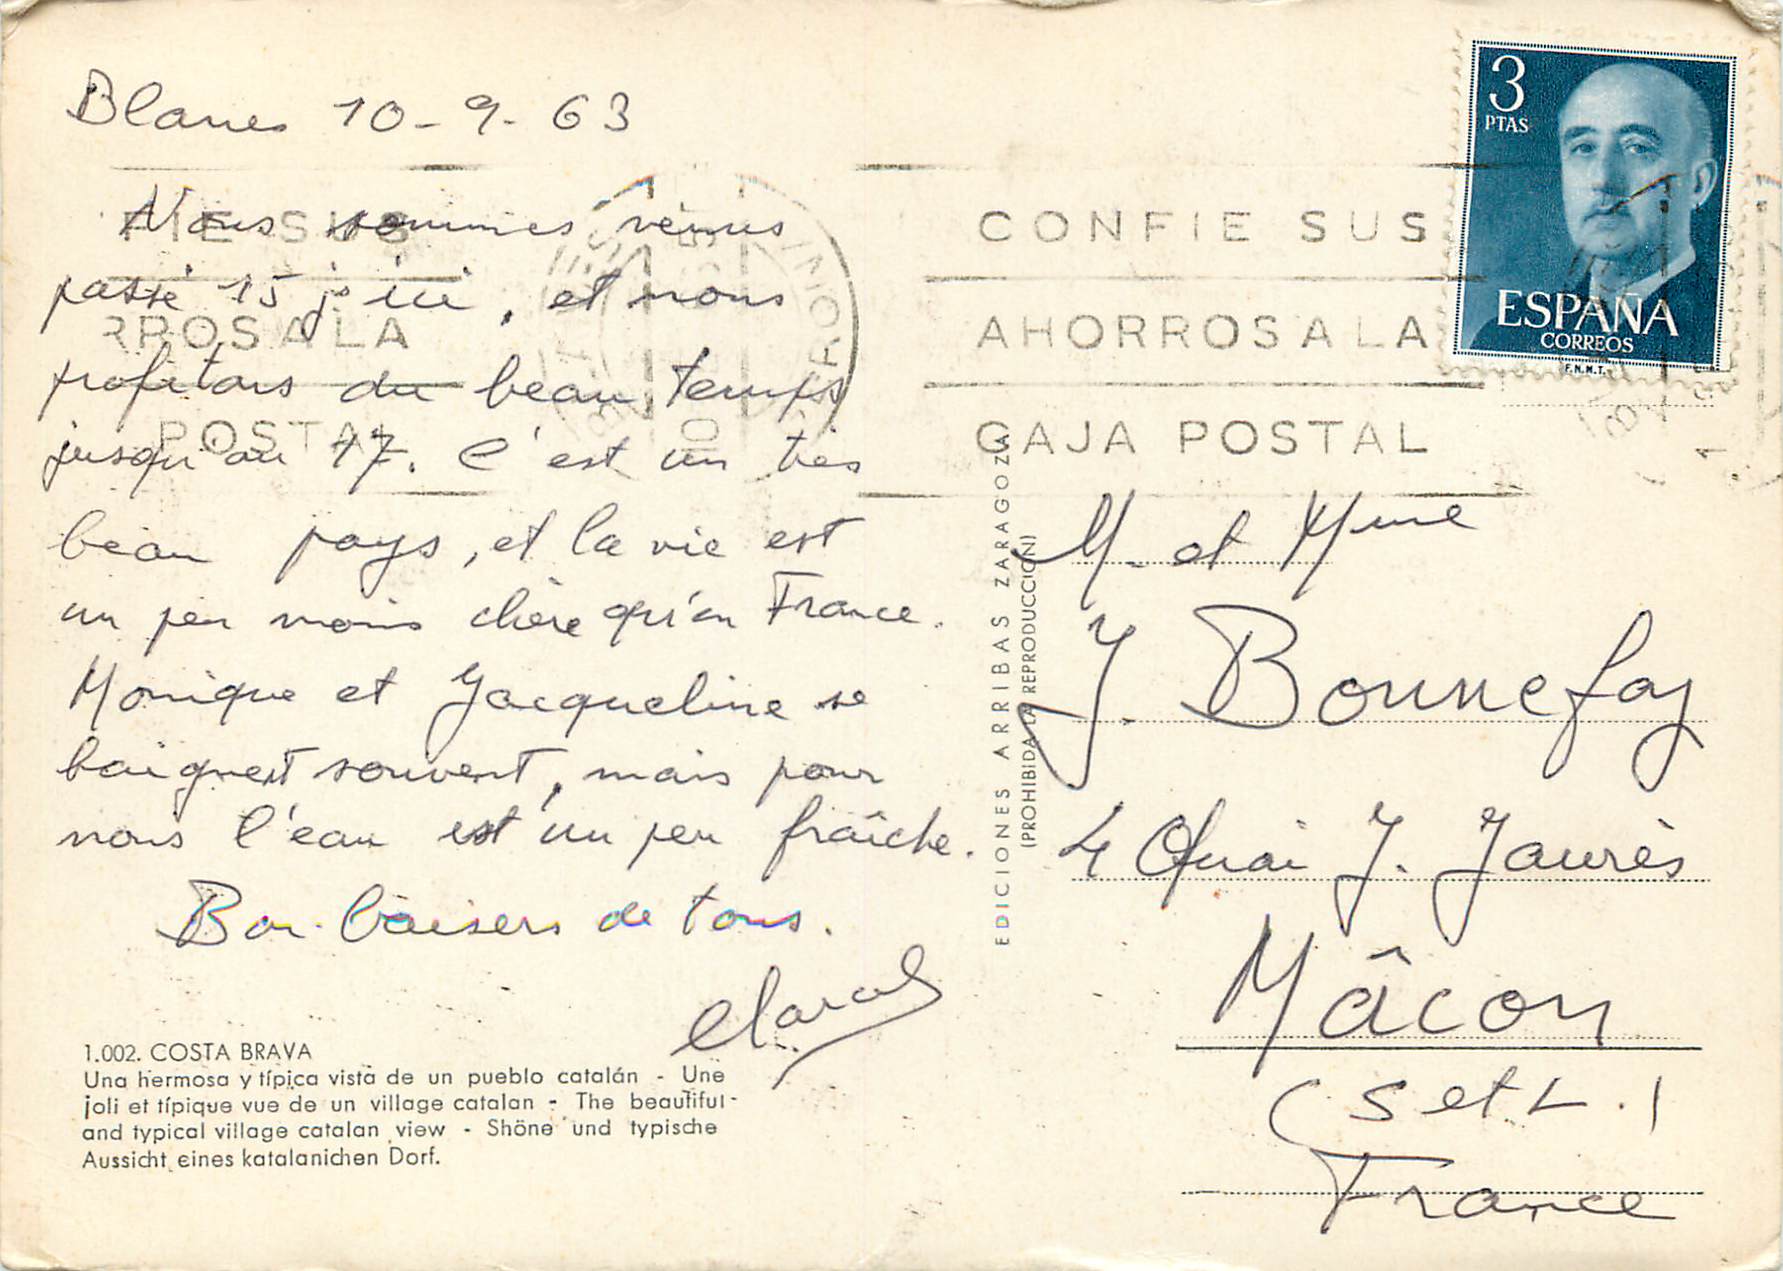 Blanes 10-9-63
Nous sommes venus
passé 15 j ici, et nous
profitons du beau temps
jusqu'au 17. C'est un très
beau pays, et la vie est
un peu moins chère qu'en France.
Monique et Jacqueline se
baignent souvent, mais pour
nous l'eau est un peu fraîche.
Bon baisers de tous.
1.002. COSTA BRAVA
Una hermosa y típica vista de un pueblo catalán - Une
joli et típique vue de un village catalan - The beautiful
and typical village catalan view - Shöne und typische
Aussicht eines katalanichen Dorf.
FIE SUS
RROS A LA
POSTAL
EDICIONES ARRIBAS ZARAGOZA
(PROHIBIDA LA REPRODUCCION)
CONFIE SUS
AHORROS A LA
CAJA POSTAL
3
PTAS
ESPAÑA
CORREOS
F.N.M.T.
M. et Mme
J. Bonnefoy
4 Quai J. Jaurès
Mâcon
(S et L.)
France